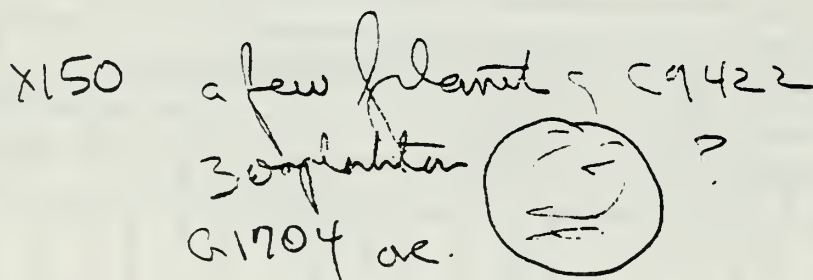 X150 a few plants C9422
30 ?
G1704 ae.